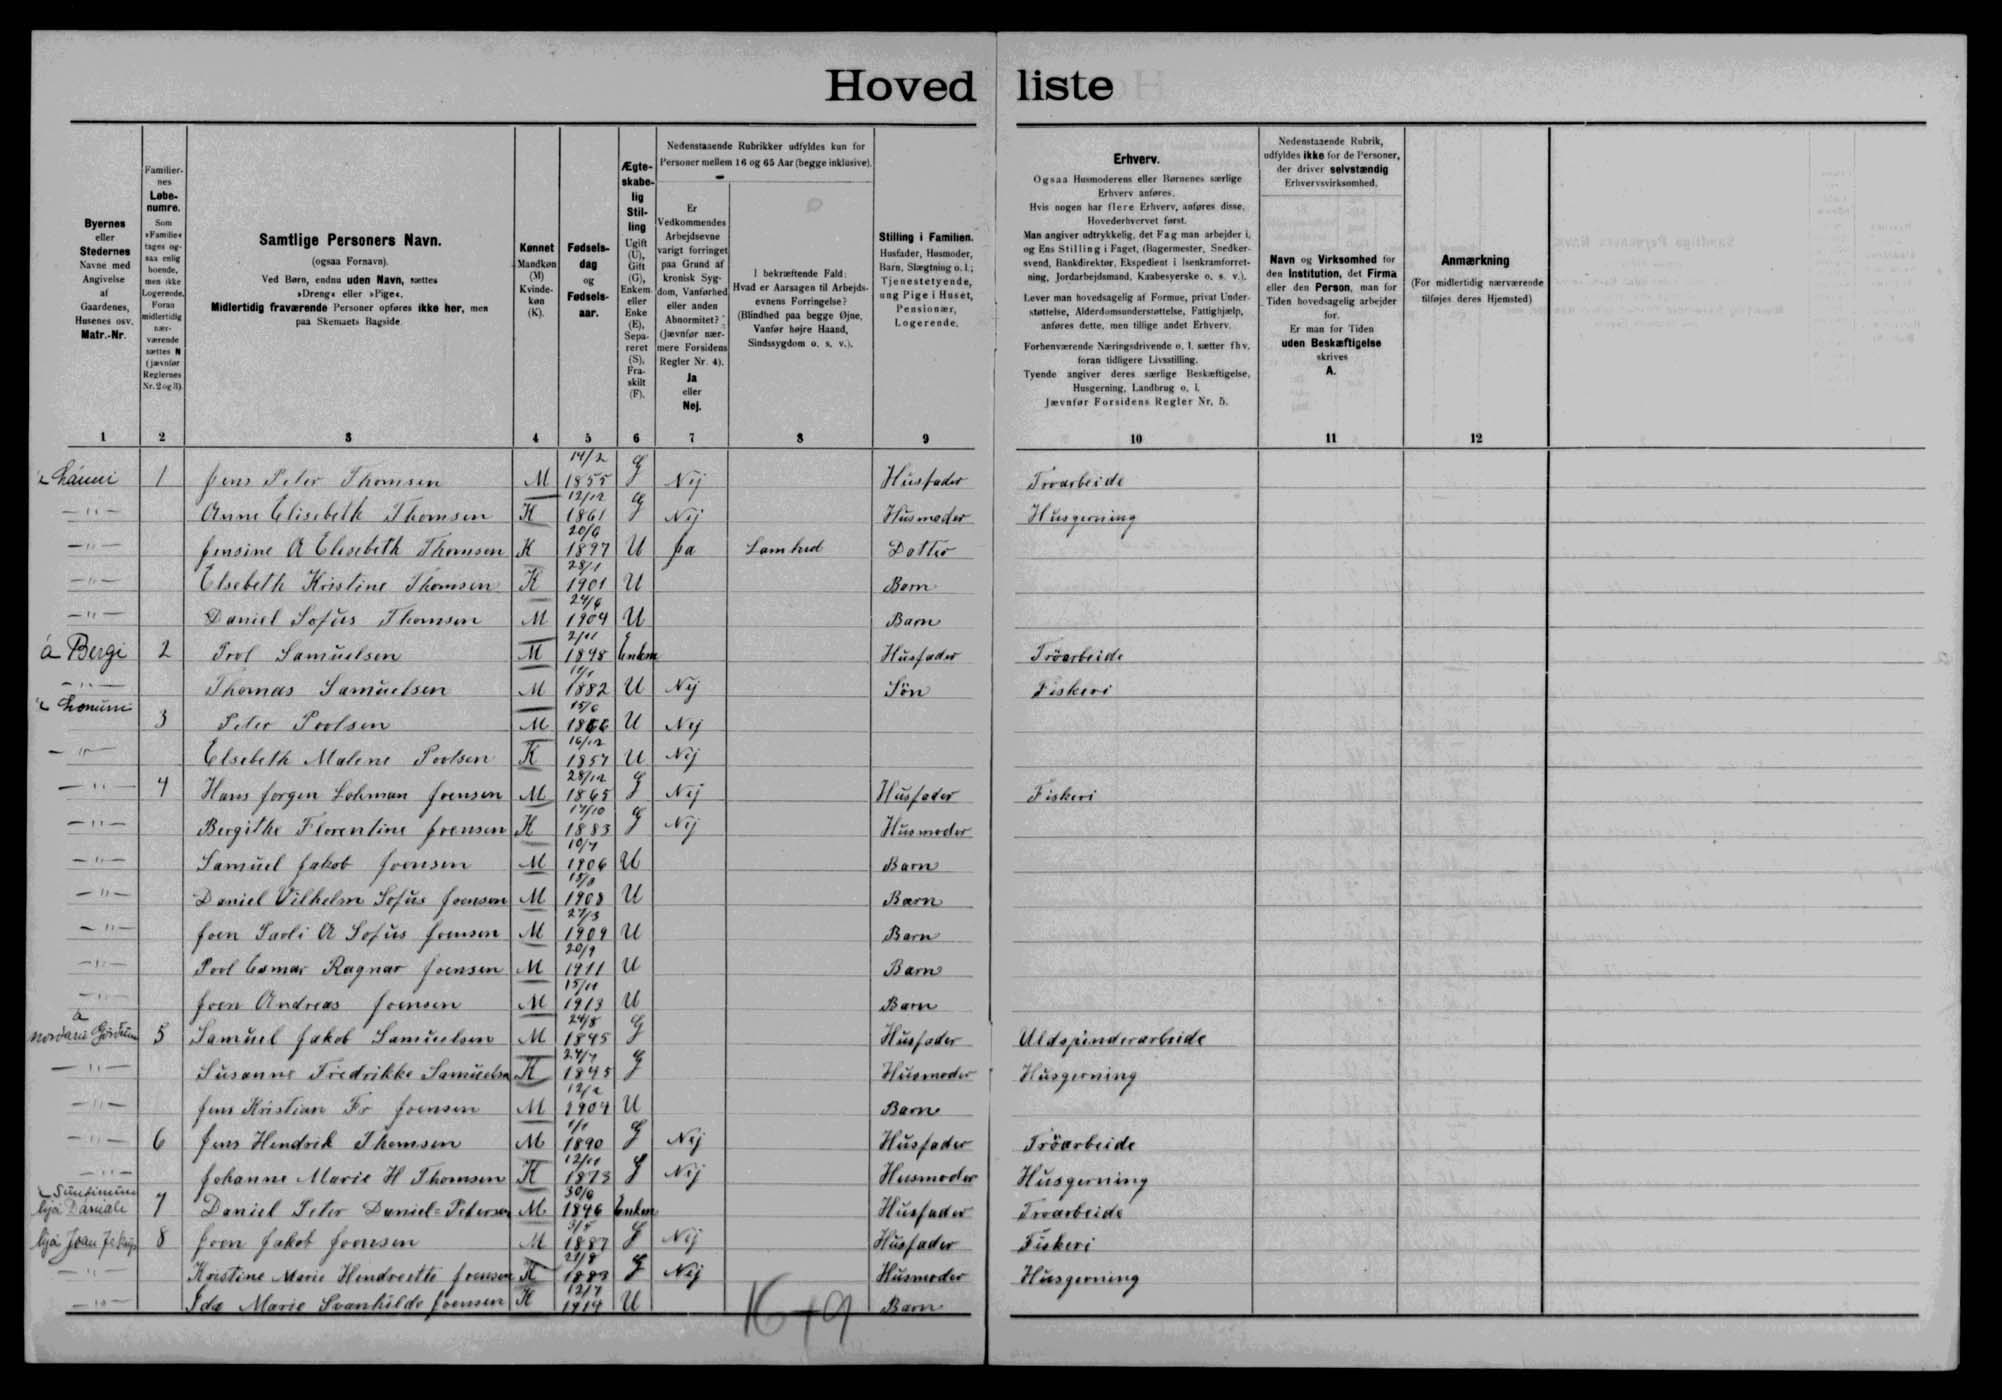 Hovedliste
Byernes
eller
Stedernes
Navne med
Angivelse
af
Gaardenes,
Husenes osv.
Matr.-Nr.
Familier-
nes
Løbe-
numre.
Som
»Familie«
tages og-
saa enlig
boende,
men ikke
Logerende.
Foran
midlertidig
nær-
værende
sættes N
(jævnfør
Reglernes
Nr. 2 og 3)
Samtlige Personers Navn.
(ogsaa Fornavn).
Ved Børn, endnu uden Navn, sættes
»Dreng« eller »Pige«.
Midlertidig fraværende Personer opføres ikke her, men
paa Skemaets Bagside.
Kønnet
Mandkøn
(M)
Kvinde-
køn
(K).
Fødsels-
dag
og
Fødsels-
aar.
Ægte-
skabe-
lig
Stil-
ling
Ugift
(U),
Gift
(G),
Enkem.
eller
Enke
(E),
Sepa-
reret
(S),
Fra-
skilt
(F).
Nedenstaaende Rubrikker udfyldes kun for
Personer mellem 16 og 65 Aar (begge inklusive).
Er
Vedkommendes
Arbejdsevne
varigt forringet
paa Grund af
kronisk Syg-
dom, Vanførhed
eller anden
Abnormitet?
(Jævnfør nær-
mere Forsidens
Regler Nr. 4).
Ja
eller
Nej.
I bekræftende Fald:
Hvad er Aarsagen til Arbejds-
evnens Forringelse?
(Blindhed paa begge Øjne,
Vanfør højre Haand,
Sindssygdom o. s. v.).
Stilling i Familien.
Husfader, Husmoder,
Barn, Slægtning o. l.;
Tjenestetyende,
ung Pige i Huset,
Pensionær,
Logerende.
Erhverv.
Ogsaa Husmoderens eller Børnenes særlige
Erhverv anføres.
Hvis nogen har flere Erhverv, anføres disse,
Hovederhvervet først.
Man angiver udtrykkelig, det Fag man arbejder i,
og Ens Stilling i Faget, (Bagermester, Snedker-
svend, Bankdirektør, Ekspedient i Isenkramforret-
ning, Jordarbejdsmand, Kaabesyerske o. s. v.).
Lever man hovedsagelig af Formue, privat Under-
støttelse, Alderdomsunderstøttelse, Fattighjælp,
anføres dette, men tillige andet Erhverv.
Forhenværende Næringsdrivende o. l. sætter fhv.
foran tidligere Livsstilling.
Tyende angiver deres særlige Beskæftigelse,
Husgerning, Landbrug o. l.
Jævnfør Forsidens Regler Nr. 5.
Nedenstaaende Rubrik,
udfyldes ikke for de Personer,
der driver selvstændig
Erhvervsvirksomhed.
Navn og Virksomhed for
den Institution, det Firma
eller den Person, man for
Tiden hovedsagelig arbejder
for.
Er man for Tiden
uden Beskæftigelse
skrives
A.
Anmærkning
(For midlertidig nærværende
tilføjes deres Hjemsted)
1 2 3 4 5 6 7 8 9 10 11 12
1 Jens Peter Thomsen M 14/2 1855 G Nej Husfader Troarbeide
—"— Anne Elisebeth Thomsen K 12/12 1861 G Nej Husmoder Husgerning
—"— Jensine A Elesebeth Thomsen K 20/6 1897 U Ja Lamhed Dotter
—"— Elsebeth Kristine Thomsen K 28/1 1901 U Barn
—"— Daniel Sofus Thomsen M 24/6 1904 U Barn
á Bergi 2 Povl Samuelsen M 2/11 1848 Enkem Husfader Tröarbeide
—"— Thomas Samuelsen M 1882 U Nej Sön Fiskeri
3 Peter Povlsen M 15/6 1866 U Nej
—"— Elsebeth Malene Povlsen K 16/12 1857 U Nej
—"— 4 Hans Jorgen Lohman Joensen M 28/12 1865 G Nej Husfader Fiskeri
—"— Bergithe Florentine Joensen K 17/10 1883 G Nej Husmoder
—"— Samuel Jakob Joensen M 10/7 1906 U Barn
—"— Daniel Vilhelm Sofus Joensen M 1908 U Barn
—"— Joen Pavli A Sofus Joensen M 27/3 1909 U Barn
—"— Povl Esmar Ragnar Joensen M 20/9 1911 U Barn
—"— Joen Andreas Joensen M 15/11 1913 U Barn
5 Samuel Jakob Samuelsen M 24/8 1845 G Husfader Uldspinderarbeide
—"— Susanne Fredrikke Samuelsen K 24/7 1845 G Husmoder Husgerning
—"— Jens Kristian Fr Joensen M 12/2 1904 U Barn
—"— 6 Jens Hendrik Thomsen M 1/1 1890 G Nej Husfader Tröarbeide
—"— Johanne Marie H Thomsen K 12/11 1873 G Nej Husmoder Husgerning
7 Daniel Peter Daniel=Petersen M 30/6 1846 Enkem Husfader Troarbeide
8 Joen Jakob Joensen M 3/5 1887 G Nej Husfader Fiskeri
—"— Kristine Marie Hendreette Joensen K 21/8 1889 G Nej Husmoder Husgerning
—"— Ida Marie Svanhilde Joensen K 12/7 1914 U Barn
16+9